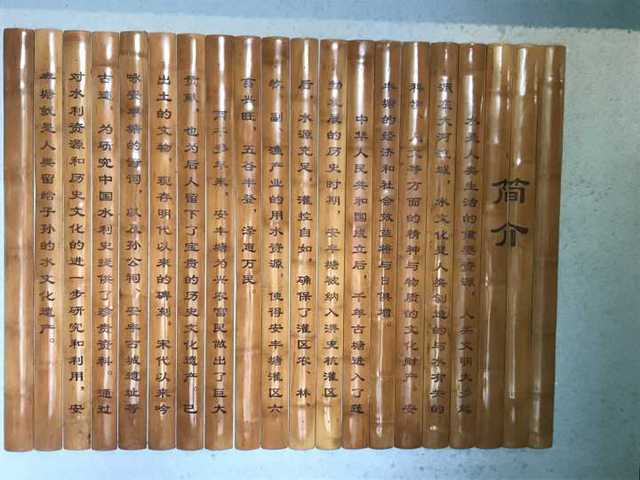 简介
水是人类生活的重要资源，人类文明大多起
源在大河流域，水文化是人类创造的与水有关的
科技、人文等方面的精神与物质的文化财产，安
丰塘的经济和社会效益将与日俱增。
中华人民共和国成立后，千年古塘进入了蓬
勃发展的历史时期，安丰塘被纳入淠史杭灌区
后，水源充足，灌控自如，确保了灌区农、林、
牧、副、渔产业的用水资源，使得安丰塘灌区六
畜兴旺，五谷丰登，泽惠万民
两千多年来，安丰塘为兴农富民做出了巨大
贡献，也为后人留下了宝贵的历史文化遗产。已
出土的文物，现存明代以来的碑刻。宋代以来吟
咏安丰塘的诗词，以及孙公祠、安丰古城遗址等
古迹，为研究中国水利史提供了珍贵资料。通过
对水利资源和历史文化的进一步研究和利用，安
丰塘就是人类留给子孙的水文化遗产。